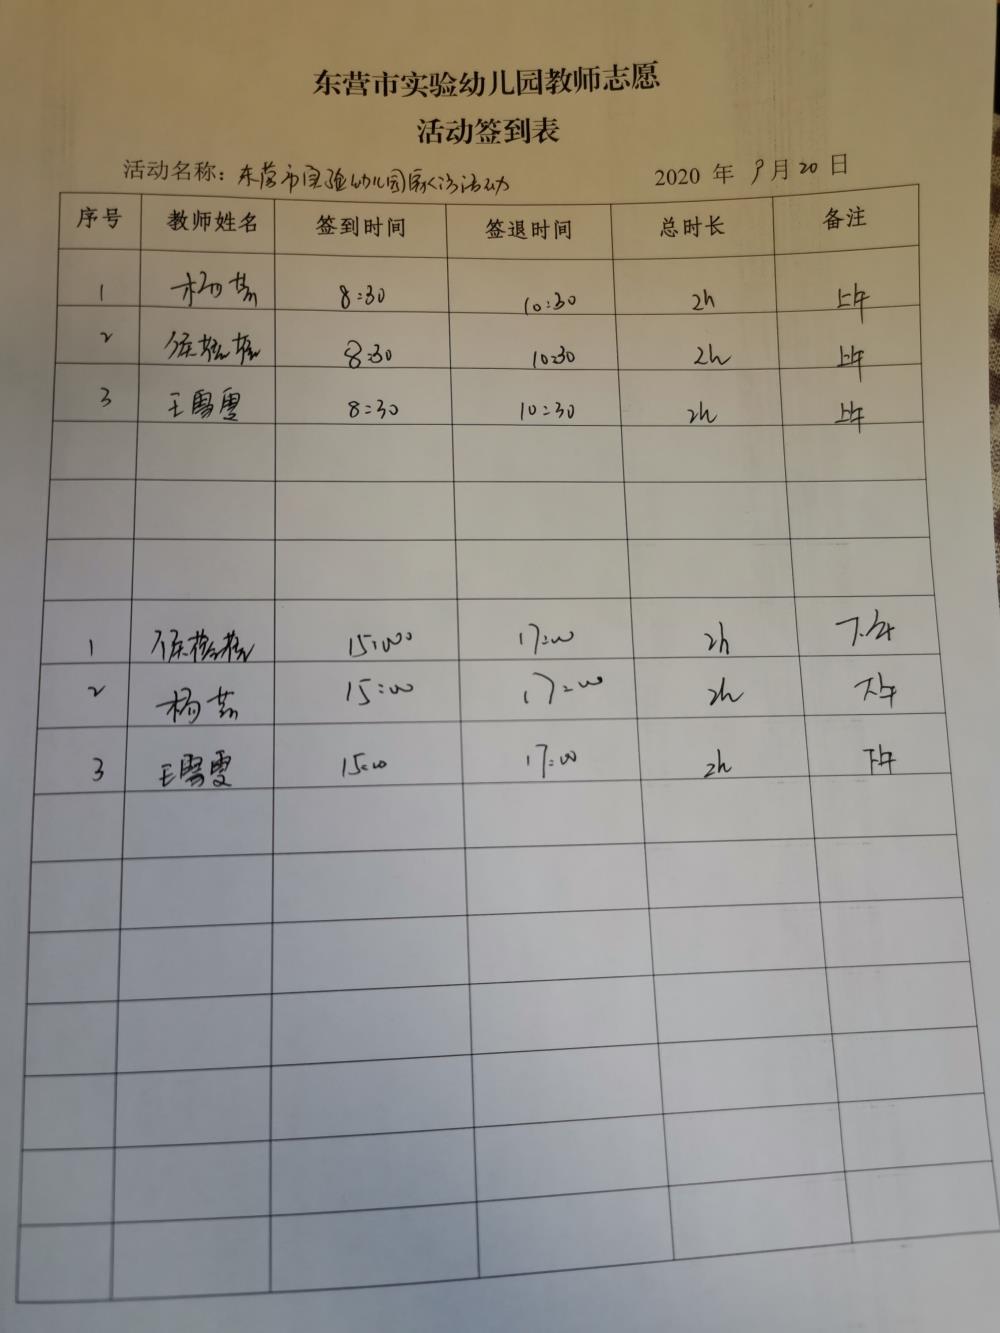 东营市实验幼儿园教师志愿
活动签到表
活动名称：东营市实验幼儿园活动 2020 年 9月 20 日
序号 教师姓名 签到时间 签退时间 总时长 备注
1 杨茹 8:30 10:30 2h 上午
2 8:30 10:30 2h 上午
3 王雪雯 8:30 10:30 2h 上午
1 15:000 17:00 2h 下午
2 杨茹 15:00 17:00 2h 下午
3 王雪雯 15:00 17:00 2h 下午